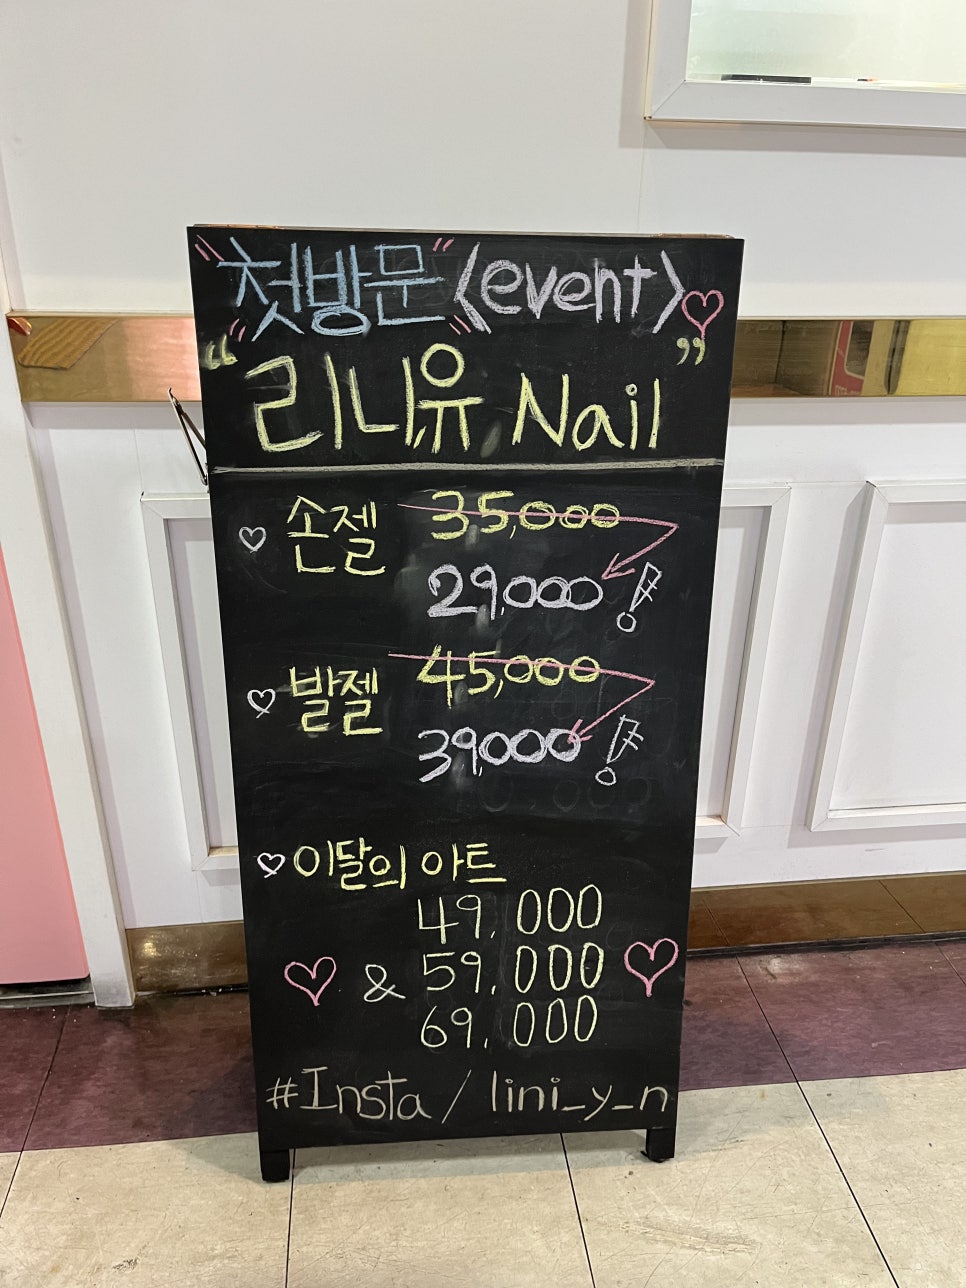 "첫방문" <event>
"리니,유 Nail"
손젤 35,000
29,000!
발젤 45,000
39,000!
이달의 아트
49,000
& 59,000
69,000
#Insta / lini_y_n